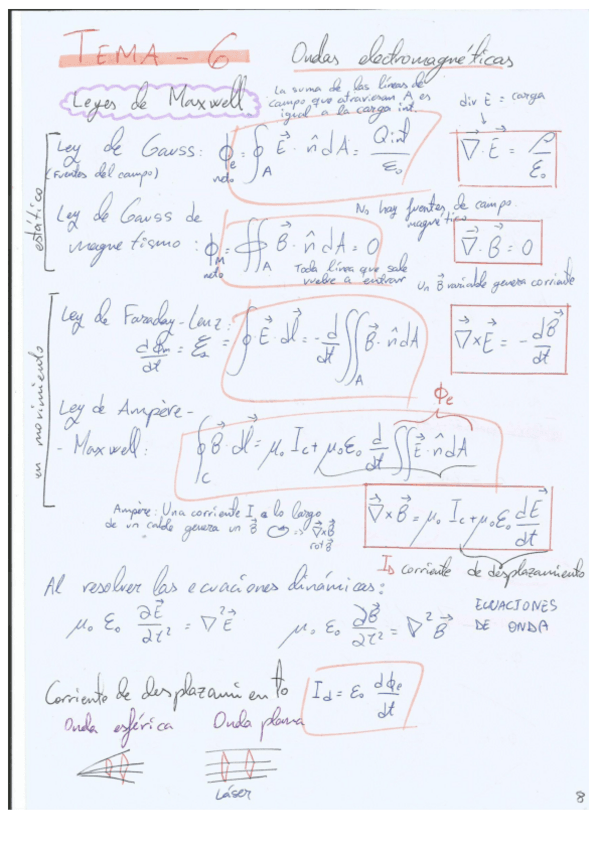 TEMA - 6 Ondas electromagnéticas
Leyes de Maxwell
La suma de las líneas de
campo que atraviesan A es
igual a la carga int.
div E⃗ = carga
↓
estático
Ley de Gauss: ϕe = ∮_A E⃗ · n̂ dA = Qint/ε₀
neto
(Fuentes del campo)
∇⃗ · E⃗ = ρ/ε₀
No hay fuentes de campo
magnético
Ley de Gauss de
magnetismo: ϕm = ∯_A B⃗ · n̂ dA = 0
neto
Toda línea que sale
vuelve a entrar
∇⃗ · B⃗ = 0
Un B⃗ variable genera corriente
en movimiento
Ley de Faraday-Lenz:
dϕm/dt = ℰ = ∮ E⃗ · dl⃗ = - d/dt ∬_A B⃗ · n̂ dA
∇⃗ x E⃗ = - dB⃗/dt
Ley de Ampère -
- Maxwell: ∮_C B⃗ · dl⃗ = μ₀ Ic + μ₀ ε₀ d/dt ∬ E⃗ · n̂ dA
ϕe
Ampère: Una corriente I a lo largo
de un cable genera un B⃗ => ∇⃗xB⃗
rot B⃗
∇⃗ x B⃗ = μ₀ Ic + μ₀ ε₀ dE⃗/dt
ID corriente de desplazamiento
Al resolver las ecuaciones dinámicas:
μ₀ ε₀ ∂E⃗/∂t² = ∇² E⃗ μ₀ ε₀ ∂B⃗/∂t² = ∇² B⃗
ECUACIONES
DE ONDA
Corriente de desplazamiento Id = ε₀ dϕe/dt
Onda esférica Onda plana
Láser
8